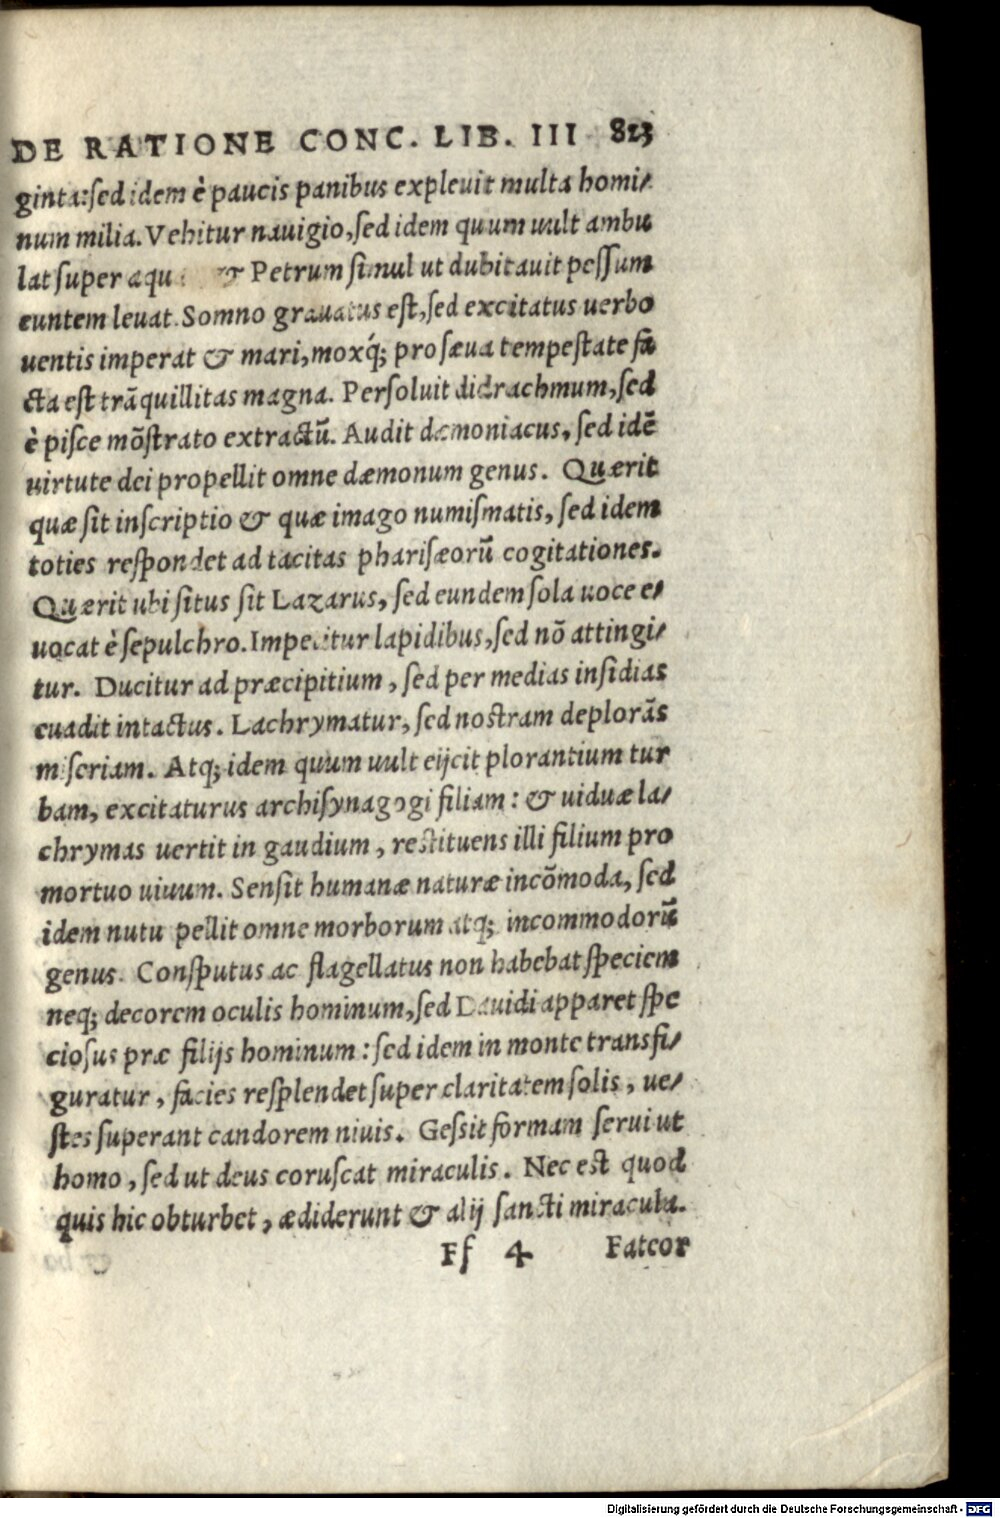 DE RATIONE CONC. LIB. III 823
ginta: sed idem è paucis panibus expleuit multa homi⸗
num milia. Vehitur nauigio, sed idem quum uult ambu
lat super aqu & Petrum simul ut dubitauit pessum
euntem leuat. Somno grauatus est, sed excitatus uerbo
uentis imperat & mari, moxq́; pro sæua tempestate fa
cta est trāquillitas magna. Persoluit didrachmum, sed
è pisce mōstrato extractū. Audit dæmoniacus, sed idē
uirtute dei propellit omne dæmonum genus. Quærit
quæ sit inscriptio & quæ imago numismatis, sed idem
toties respondet ad tacitas pharisæorū cogitationes.
Quærit ubi situs sit Lazarus, sed eundem sola uoce e⸗
uocat è sepulchro. Impetitur lapidibus, sed nō attingi⸗
tur. Ducitur ad præcipitium, sed per medias insidias
euadit intactus. Lachrymatur, sed nostram deplorās
miseriam. Atq; idem quum uult eijcit plorantium tur
bam, excitaturus archisynagogi filiam: & uiduæ la⸗
chrymas uertit in gaudium, restituens illi filium pro
mortuo uiuum. Sensit humanæ naturæ incōmoda, sed
idem nutu pellit omne morborum atq; incommodorū
genus. Consputus ac flagellatus non habebat speciem
neq; decorem oculis hominum, sed Dauidi apparet spe
ciosus præ filijs hominum: sed idem in monte transfi⸗
guratur, facies resplendet super claritatem solis, ue⸗
stes superant candorem niuis. Gessit formam serui ut
homo, sed ut deus coruscat miraculis. Nec est quod
quis hic obturbet, ædiderunt & alij sancti miracula.
Ff 4 Fateor
Digitalisierung gefördert durch die Deutsche Forschungsgemeinschaft - DFG